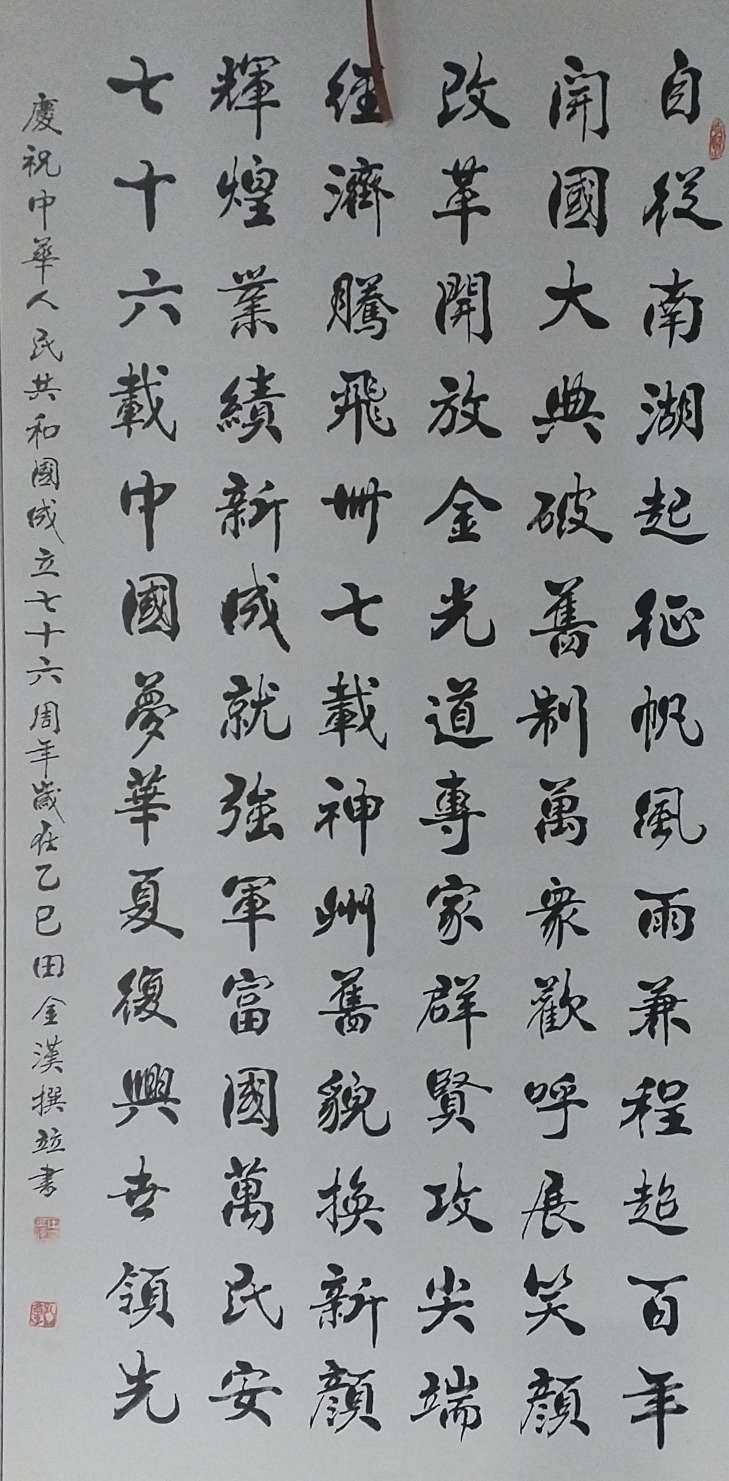 自從南湖起征帆風雨兼程超百年
開國大典破舊制萬衆歡呼展笑顔
改革開放金光道專家群賢攻尖端
經濟騰飛卅七載神州舊貌換新顔
輝煌業績新成就強軍富國萬民安
七十六載中國夢華夏復興世領先
慶祝中華人民共和國成立七十六周年歲在乙巳田金漢撰並書